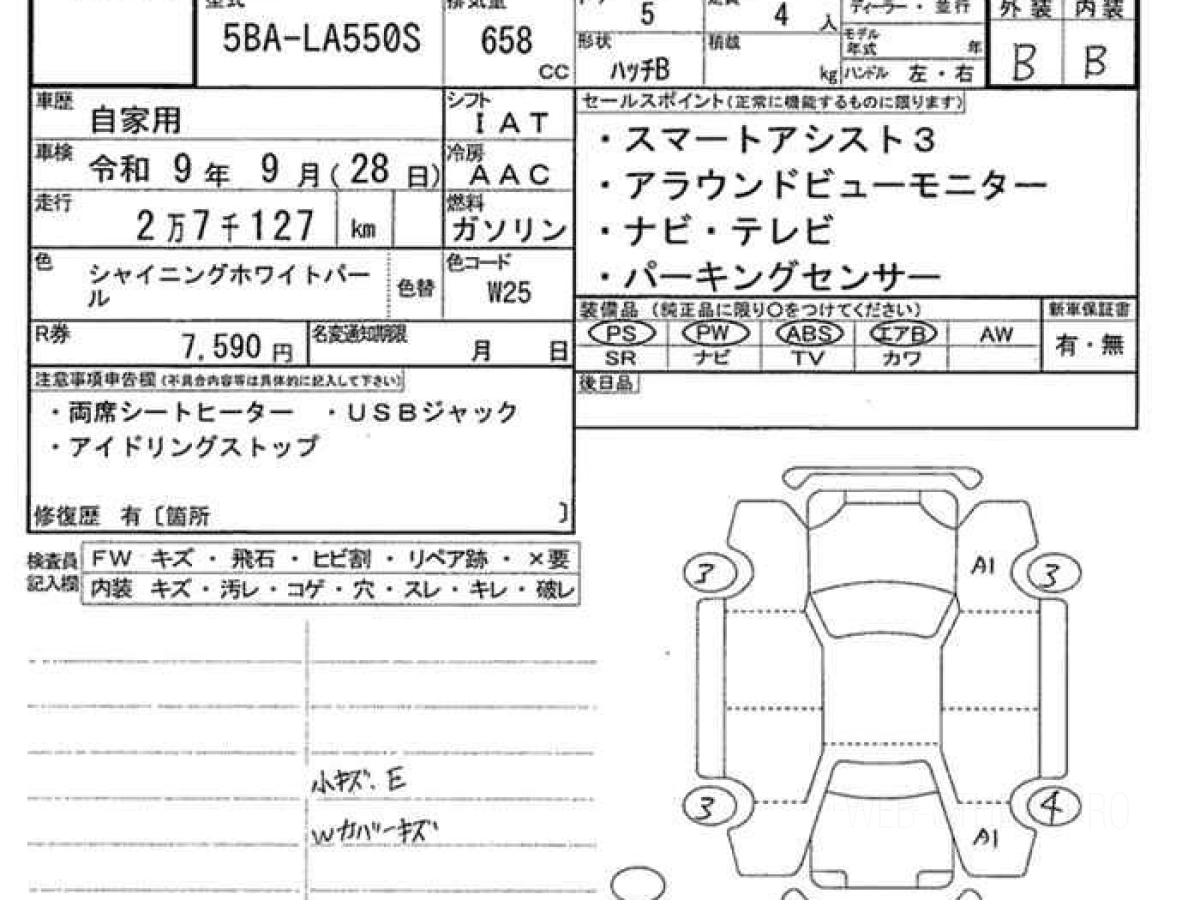 型式
5BA-LA550S
排気量
658
CC
5
4 人
形状
ハッチB
積載
kg
ディーラー・並行
モデル年式 年
ハンドル 左・右
外装 内装
B B
車歴
自家用
シフト
IAT
車検
令和 9年 9月(28日)
冷房
AAC
走行
2万7千127 km
燃料
ガソリン
色
シャイニングホワイトパール
色替
色コード
W25
R券
7,590円
名変通知期限
月 日
注意事項申告欄(不具合内容等は具体的に記入して下さい)
・両席シートヒーター ・USBジャック
・アイドリングストップ
修復歴 有〔箇所 〕
セールスポイント(正常に機能するものに限ります)
・スマートアシスト3
・アラウンドビューモニター
・ナビ・テレビ
・パーキングセンサー
装備品 (純正品に限り○をつけてください)
PS PW ABS エアB AW
SR ナビ TV カワ
新車保証書
有・無
後日品
検査員記入欄
FW キズ・飛石・ヒビ割・リペア跡・×要
内装 キズ・汚レ・コゲ・穴・スレ・キレ・破レ
小キズ.E
Wカバーキズ
3 A1 3
3 4
A1